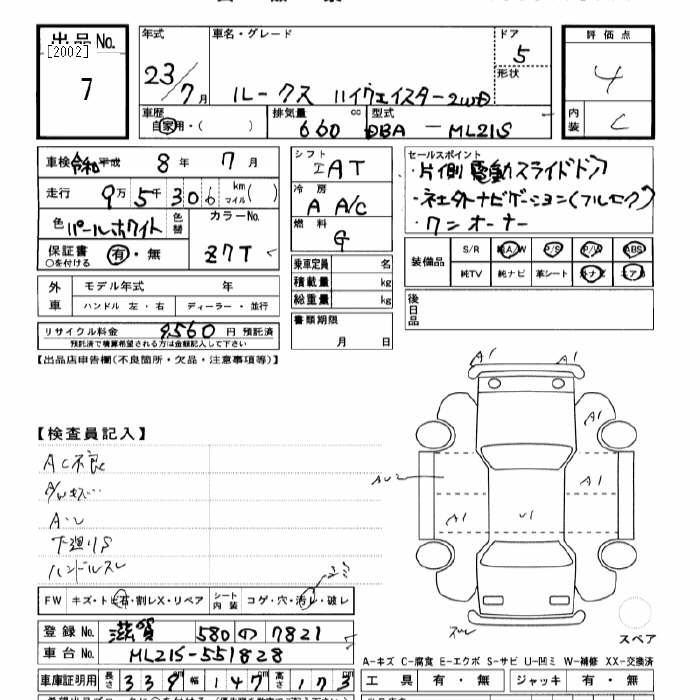 出品No.
[2002]
7
年式
23/7月
車名・グレード
ルークス ハイウェイスター2WD
ドア
5
形状
評価点
4
内装
C
車歴
自家用・( )
排気量 cc
660
型式
DBA － ML21S
車検 令和 平成 8年 7月
走行 9万5千306 km マイル( )
色 パールホワイト 色替
カラーNo.
Z7T
保証書 有・無
○を付ける
シフト
IAT
冷房
A A/C
燃料
G
乗車定員 名
積載量 kg
総重量 kg
書類期限
月 日
セールスポイント
・片側電動スライドドア
・社外ナビゲーション(フルセグ)
・ワンオーナー
装備品
S/R 純A/W P/S P/W ABS
純TV 純ナビ 革シート エアB
後日品
外車 モデル年式 年
ハンドル 左・右 ディーラー・並行
リサイクル料金 9,560 円 預託済
預託済で積算希望される方は金額記入して下さい
【出品店申告欄(不良箇所・欠品・注意事項等)】
【検査員記入】
AC不良
A・U
下廻りS
ハンドルスレ
A1 A1
A1
A1
A1
U1
スペア
FW キズ・トビ石・割レX・リペア シート内装 コゲ・穴・汚レ・破レ
登録No. 滋賀 580 の 7821
車台No. ML21S-551828
A-キズ C-腐食 E-エクボ S-サビ U-凹ミ W-補修 XX-交換済
車庫証明用 長さ 339 幅 147 高さ 173
工具 有・無 ジャッキ 有・無